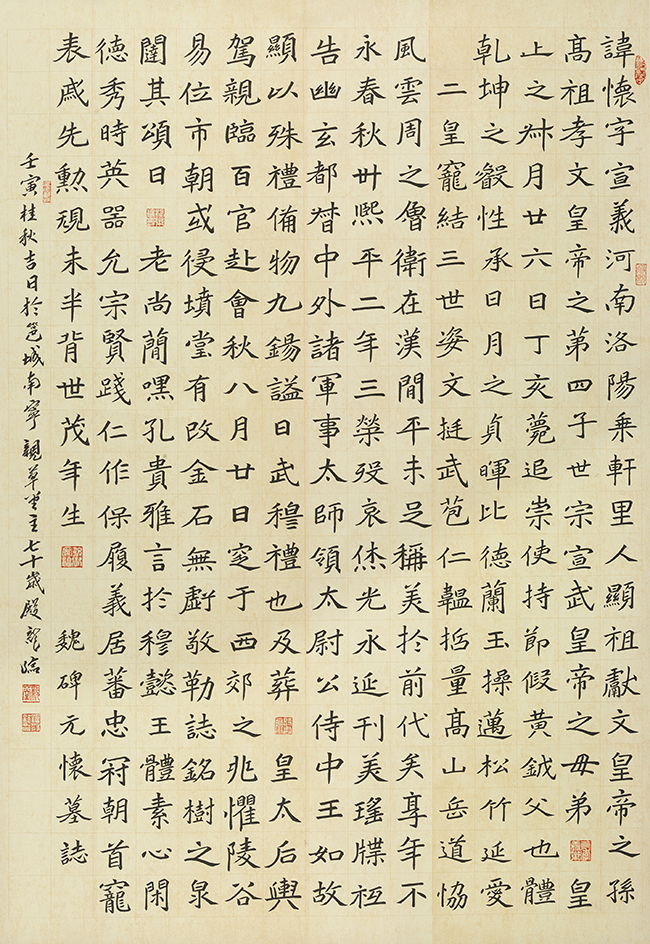 諱懷字宣義河南洛陽乘軒里人顯祖獻文皇帝之孫
高祖孝文皇帝之第四子世宗宣武皇帝之母弟皇
上之叔月廿六日丁亥薨追崇使持節假黃鉞父也體
乾坤之叡性承日月之貞暉比德蘭玉操邁松竹延愛
二皇寵結三世姿文挺武苞仁韞括量高山岳道協
風雲周之魯衛在漢間平未足稱美於前代矣享年不
永春秋卅熙平二年三縈歿哀烋光永延刊美瑤牒袛
告幽玄都督中外諸軍事太師領太尉公侍中王如故
顯以殊禮備物九錫謚曰武穆禮也及葬 皇太后輿
駕親臨百官赴會秋八月廿日窆于西郊之兆懼陵谷
易位市朝或侵墳堂有改金石無虧敬勒誌銘樹之泉
闥其頌曰 老尚簡嘿孔貴雅言於穆懿王體素心閑
德秀時英器允宗賢踐仁作保履義居蕃忠冠朝首寵
表戚先勳覌未半背世茂年生 魏碑元懷墓誌
壬寅桂秋吉日於邕城南寧親草堂主七十歲殷龍臨